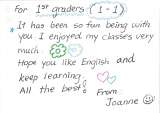 For 1st graders (1-1)
* It has been so fun being with
you I enjoyed my classes very
much
Hope you like English and
keep learning.
All the best! From
Joanne